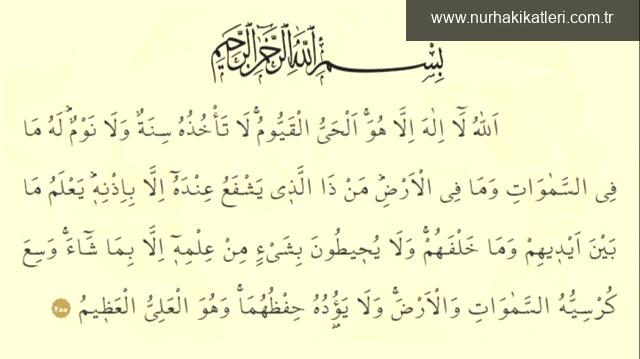 www.nurhakikatleri.com.tr
بِسْمِ اللّٰهِ الرَّحْمٰنِ الرَّحِيمِ
اَللّٰهُ لَٓا اِلٰهَ اِلَّا هُوَۚ اَلْحَىُّ الْقَيُّومُۚ لَا تَأْخُذُهُ سِنَةٌ وَلَا نَوْمٌۜ لَهُ مَا
فِى السَّمٰوَاتِ وَمَا فِى الْاَرْضِۜ مَنْ ذَا الَّذٖى يَشْفَعُ عِنْدَهُٓ اِلَّا بِاِذْنِهٖۜ يَعْلَمُ مَا
بَيْنَ اَيْدٖيهِمْ وَمَا خَلْفَهُمْۚ وَلَا يُحٖيطُونَ بِشَىْءٍ مِنْ عِلْمِهٖٓ اِلَّا بِمَا شَٓاءَۚ وَسِعَ
كُرْسِيُّهُ السَّمٰوَاتِ وَالْاَرْضَۚ وَلَا يَؤُ۫دُهُ حِفْظُهُمَاۚ وَهُوَ الْعَلِىُّ الْعَظٖيمُ ٢٥٥